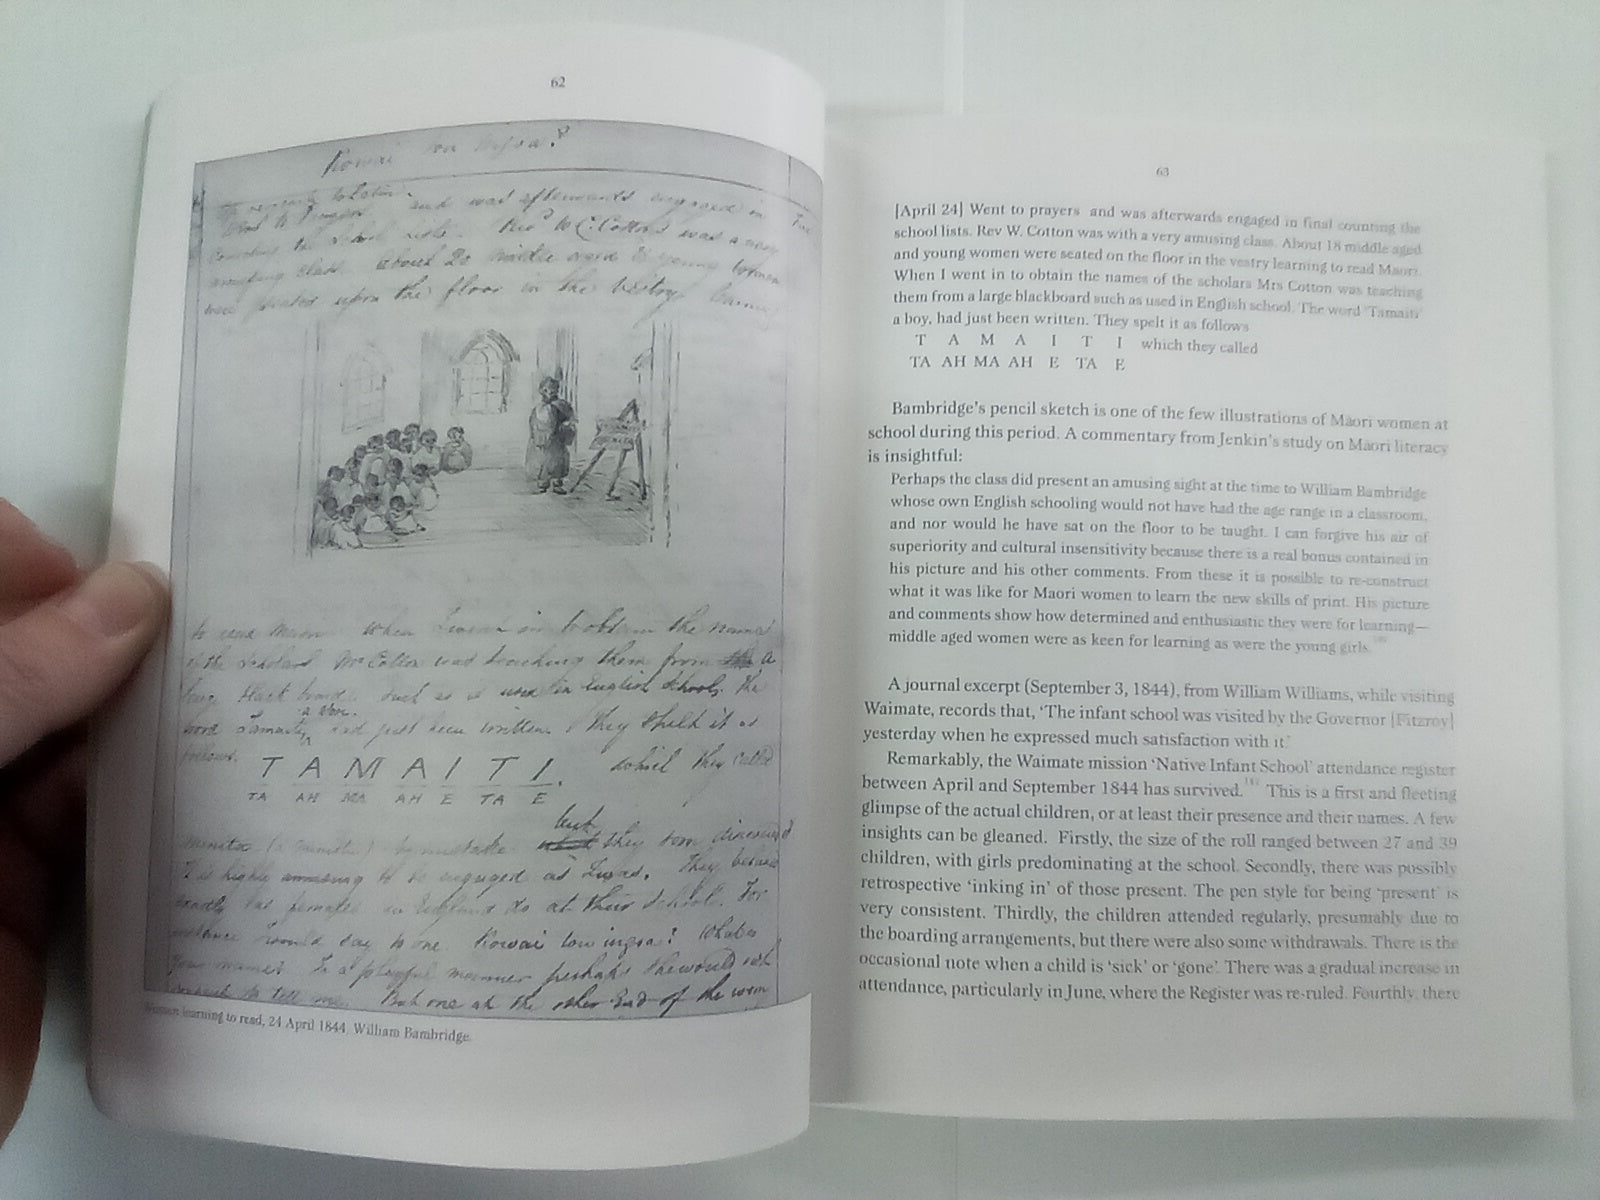 62
Kowai tou ingoa?
and was afterwards engaged in
counting the School lists. Revd W. C. Cotton was a very
amusing class. about 20 middle aged & young women
were seated upon the floor in the Vestry learning
to read Maori. When I went in to obtain the names
of the Scholars Mr Cotton was teaching them from a
large black board such as is used in English Schools. The
word Tamaiti had just been written. They spelt it as
follows.
T A M A I T I. which they called
TA AH MA AH E TA E
but
by mistake they soon discovered
to be engaged as They behave
exactly as females in England do at their Schools. For
instance I would say to one Kowai tou ingoa? What is
your name? In a playful manner perhaps she would not
to tell me. But one at the other End of the room
Women learning to read, 24 April 1844, William Bambridge.
63
[April 24] Went to prayers and was afterwards engaged in final counting the
school lists. Rev W. Cotton was with a very amusing class. About 18 middle aged
and young women were seated on the floor in the vestry learning to read Maori.
When I went in to obtain the names of the scholars Mrs Cotton was teaching
them from a large blackboard such as used in English school. The word 'Tamaiti'
a boy, had just been written. They spelt it as follows
T A M A I T I which they called
TA AH MA AH E TA E
Bambridge's pencil sketch is one of the few illustrations of Māori women at
school during this period. A commentary from Jenkin's study on Maori literacy
is insightful:
Perhaps the class did present an amusing sight at the time to William Bambridge
whose own English schooling would not have had the age range in a classroom,
and nor would he have sat on the floor to be taught. I can forgive his air of
superiority and cultural insensitivity because there is a real bonus contained in
his picture and his other comments. From these it is possible to re-construct
what it was like for Maori women to learn the new skills of print. His picture
and comments show how determined and enthusiastic they were for learning—
middle aged women were as keen for learning as were the young girls.
A journal excerpt (September 3, 1844), from William Williams, while visiting
Waimate, records that, 'The infant school was visited by the Governor [Fitzroy]
yesterday when he expressed much satisfaction with it.'
Remarkably, the Waimate mission 'Native Infant School' attendance register
between April and September 1844 has survived. This is a first and fleeting
glimpse of the actual children, or at least their presence and their names. A few
insights can be gleaned. Firstly, the size of the roll ranged between 27 and 39
children, with girls predominating at the school. Secondly, there was possibly
retrospective 'inking in' of those present. The pen style for being 'present' is
very consistent. Thirdly, the children attended regularly, presumably due to
the boarding arrangements, but there were also some withdrawals. There is the
occasional note when a child is 'sick' or 'gone'. There was a gradual increase in
attendance, particularly in June, where the Register was re-ruled. Fourthly, there